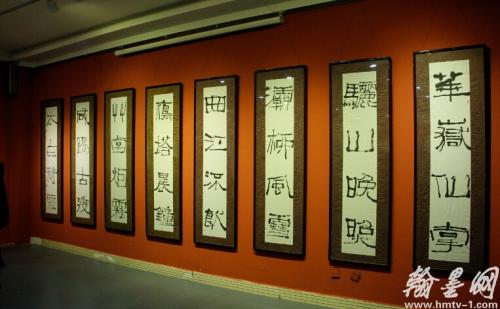 華嶽仙掌
驪山晚照
灞柳風雪
曲江流飲
雁塔晨鐘
艸堂烟霧
咸陽古渡
太白積雪
翰墨网
www.hmtv-1.com